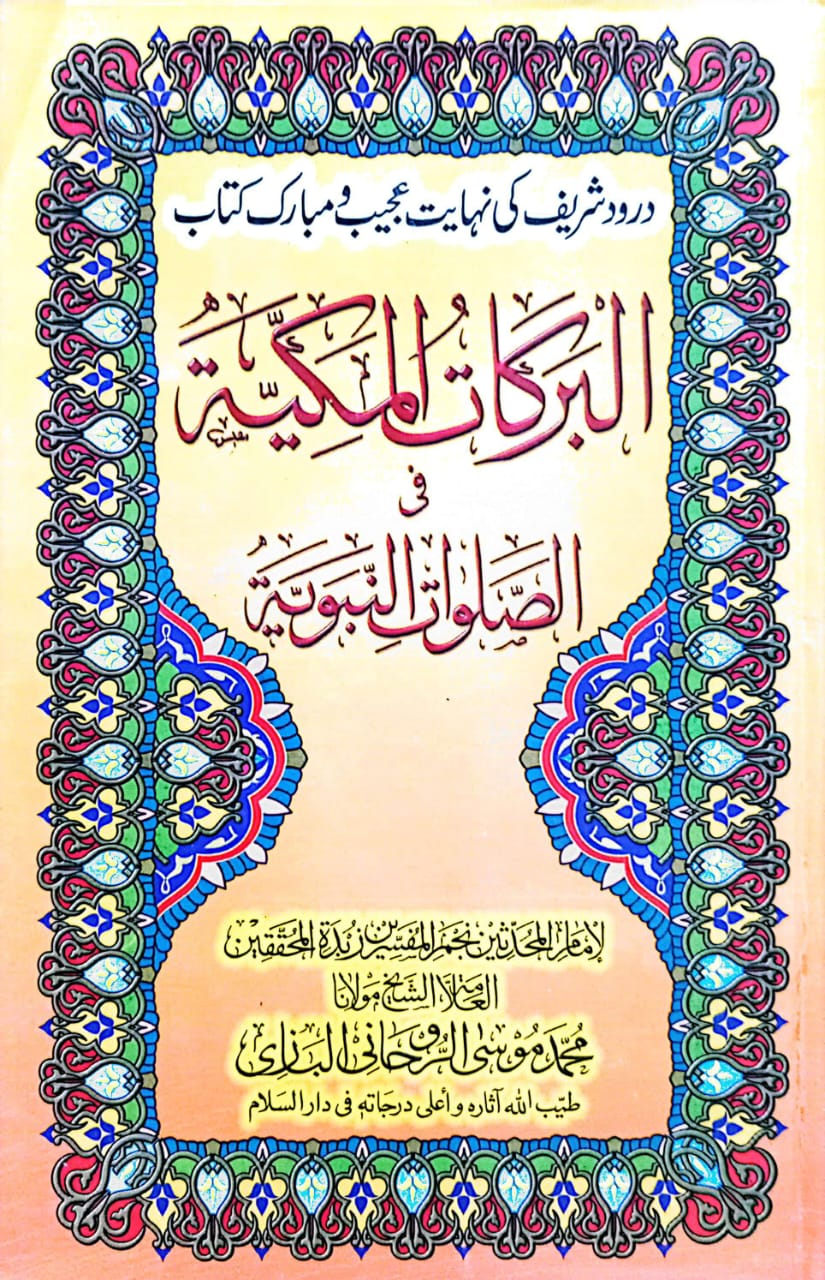 درود شریف کی نہایت عجیب و مبارک کتاب
البَرَكَاتُ المَكِّيَّةُ
فی
الصَّلَوَاتِ النَّبَوِيَّةُ
لإمام المحدّثين نجم المفسّرين زبدة المحقّقين
العلّامة الشيخ مولانا
محمّد موسیٰ الرّوحانی البازی
طيّب الله آثاره و أعلى درجاته فی دار السلام